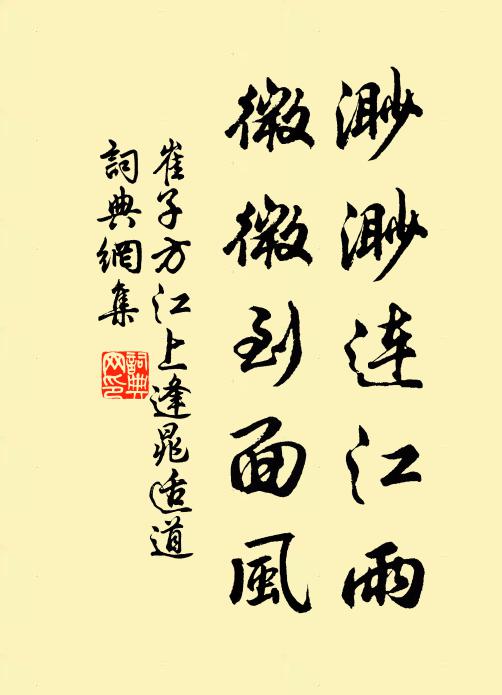 渺渺連江雨
微微到面風
崔子方江上逢晁适道
詞典網集
詞典網印